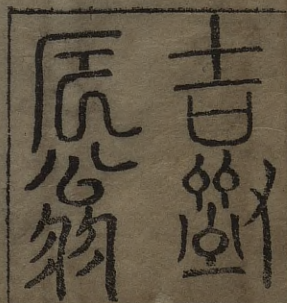 吉劉
辰翁